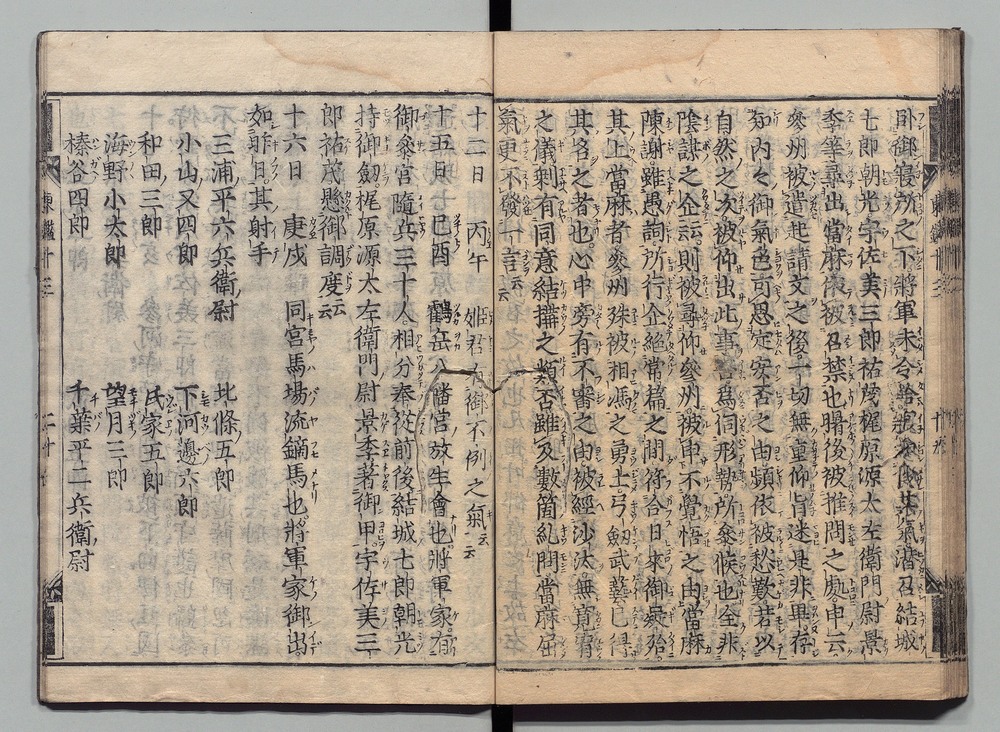 臥御寢所之下將軍未令寢給知食其氣潜召結城
七郎朝光宇佐美三郎祐茂梶原源太左衛門尉景
季等尋出當麻依被召禁也曙後被推問之處申云
參州被遣起請文之後一切無重仰旨迷是非畢存
知内々御氣色可思定安否之由頻依被愁歎若以
自然之次被仰出此事爲伺形勢所參候也全非
陰謀之企云云則被尋仰參州被申不覺悟之由當麻
陳謝雖愚詞所行企絶常篇之間符合日來御疑殆
其上當麻者參州殊被相馮之勇士弓劔武藝已得
其名之者也心中旁有不審之由被經沙汰無寛宥
之儀剩有同意結搆之類否雖及數箇糺問當麻屈
氣更不發一言云云
十二日　丙午　姫君有御不例之氣云云
十五日　己酉　鶴岳八幡宮放生會也將軍家有
御參宮隨兵三十人相分奉從前後結城七郎朝光
持御劔梶原源太左衛門尉景季著御甲宇佐美三
郎祐茂懸御調度云云
十六日　庚戌　同宮馬場流鏑馬也將軍家御出
如昨日其射手
三浦平六兵衛尉　北條五郎
小山又四郎　下河邊六郎
和田三郎　氏家五郎
海野小太郎　望月三郎
榛谷四郎　千葉平二兵衛尉
東鑑十三
二十